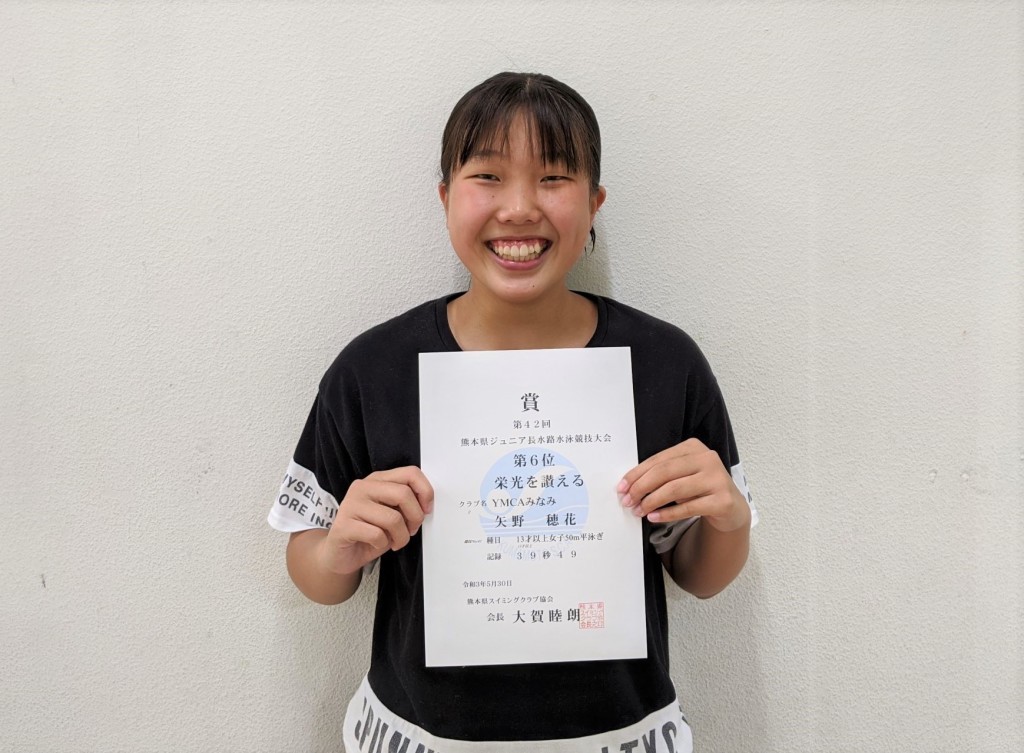 賞
第42回
熊本県ジュニア長水路水泳競技大会
第6位
栄光を讃える
クラブ名 YMCAみなみ
矢野 穂花
種目 13才以上女子50m平泳ぎ
記録 39秒49
令和3年5月30日
熊本県スイミングクラブ協会
会長 大賀睦朗
MYSELF
ORE INS